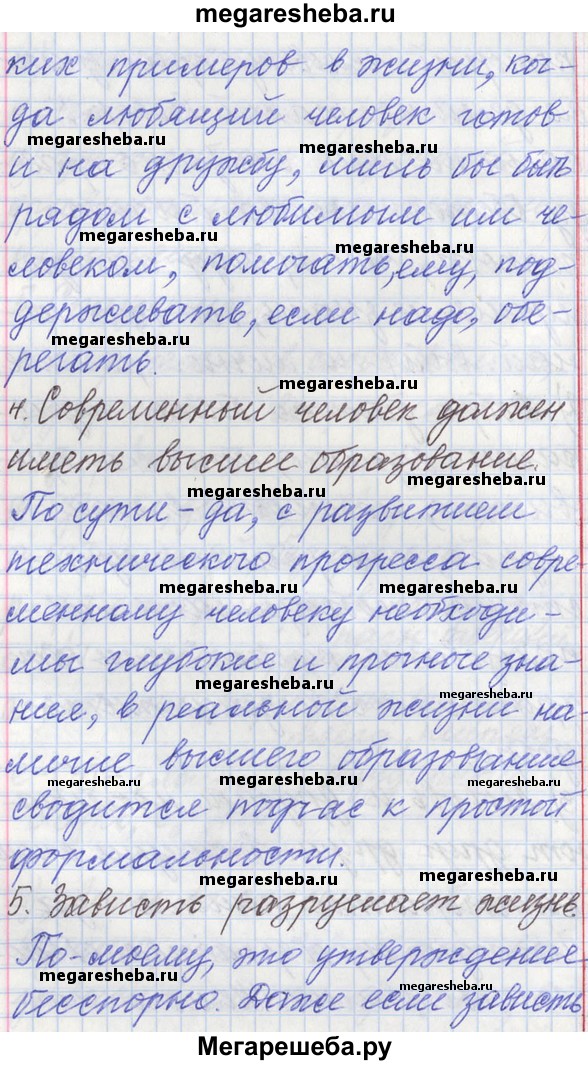 megaresheba.ru
ких примеров в жизни, ког-
да любящий человек готов
megaresheba.ru
megaresheba.ru
и на дружбу, лишь бы быть
рядом с любимым им че-
megaresheba.ru
megaresheba.ru
ловеком, помогать ему, под-
держивать, если надо, обе-
megaresheba.ru
megaresheba.ru
регать.
megaresheba.ru
4. Современный человек должен
иметь высшее образование.
megaresheba.ru
megaresheba.ru
По сути - да, с развитием
технического прогресса совре-
megaresheba.ru
megaresheba.ru
менному человеку необходи-
мы глубокие и прочные зна-
megaresheba.ru
megaresheba.ru
ния, в реальной жизни на-
личие высшего образования
megaresheba.ru
megaresheba.ru
megaresheba.ru
сводится подчас к простой
формальности.
megaresheba.ru
megaresheba.ru
5. Зависть разрушает жизнь.
По-моему, это утверждение
megaresheba.ru
megaresheba.ru
бесспорно. Даже если зависть
Мегарешеба.ру